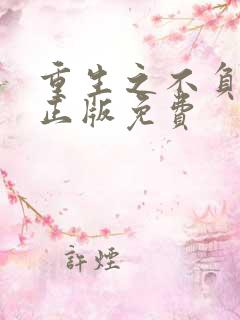 重生之不負
正版免費
許煙